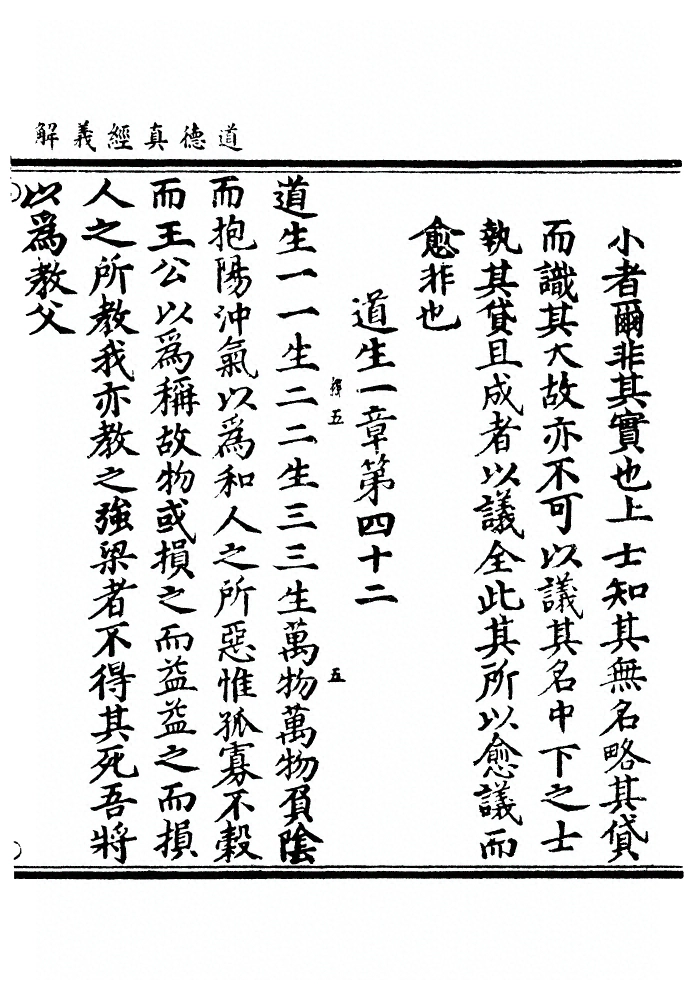 道德真經義解
小者爾非其實也上士知其無名略其貸
而識其大故亦不可以議其名中下之士
執其貸且成者以議全此其所以愈議而
愈非也
道生一章第四十二
五
五
道生一一生二二生三三生萬物萬物負陰
而抱陽沖氣以為和人之所惡惟孤寡不穀
而王公以為稱故物或損之而益益之而損
人之所教我亦教之強梁者不得其死吾將
以為教父